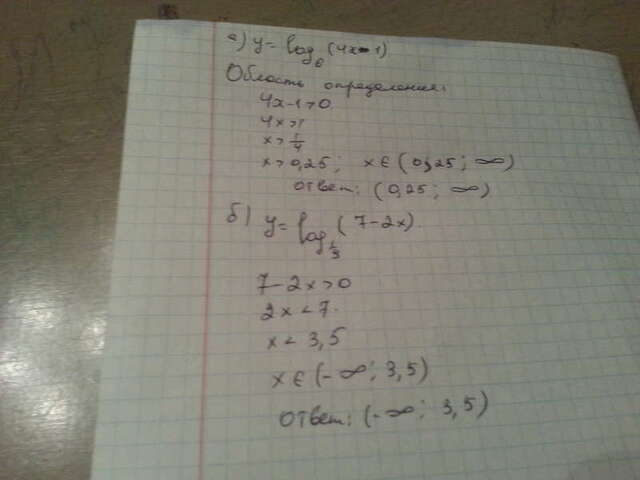 а) y = log₆ (4x-1)
Область определения:
4x-1>0
4x>1
x>1/4
x>0,25; x∈(0,25; ∞)
ответ: (0,25; ∞)
б) y = log_{1/3} (7-2x).
7-2x>0
2x<7.
x<3,5
x∈(-∞; 3,5)
ответ: (-∞; 3,5)